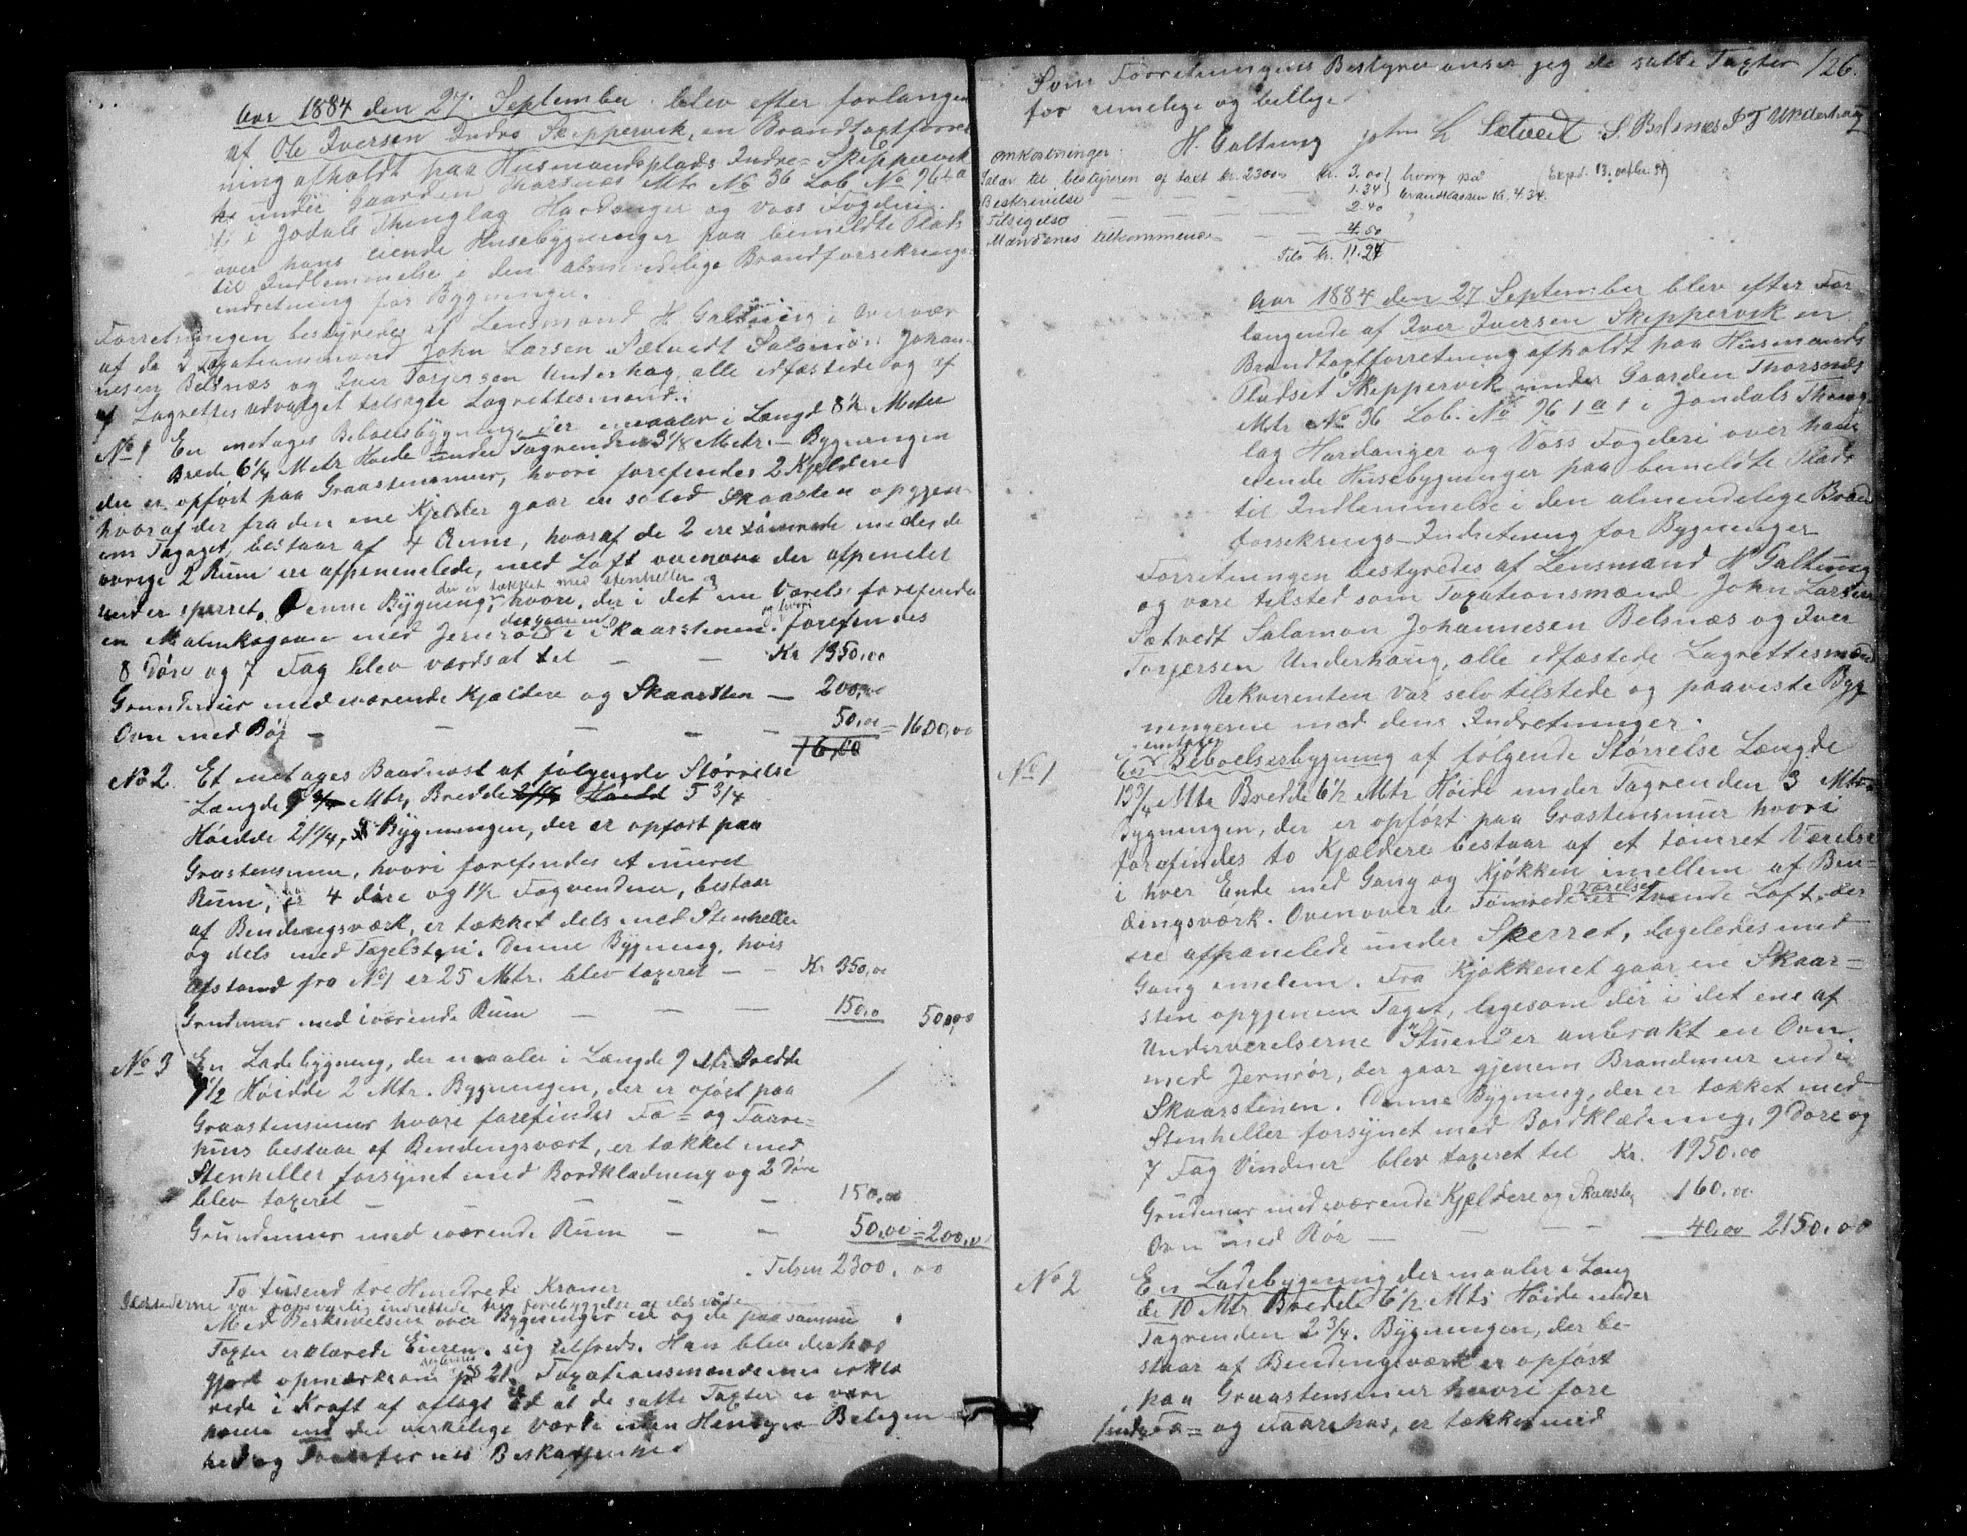 Aar 1884 den 27. September blev efter forlangen
af Ole Iversen Indre Skippervik, en Brandtaxtforret
ning afholdt paa Husmandsplads Indre Skippervik
under Gaarden Thorsnæs Mtr No 36 Lob. No 96 1 a
i Jondals Thinglag Hardanger og Voss Fogderi
over hans eiende Husebygninger paa bemeldte Plads
til Indlemmelse i den almendelige Brandforsekrings
indretning for Bygninger.
Forretningen bestyredes af Lensmand H Galtung i Overvær
af de 3 Taxationsmænd John Larsen Sætvedt Salamon Johan-
nesen Belsnæs og Iver Torjersen Underhag, alle edfæstede og af
Lagrettesudvalget tilsagte Lagrettesmænd.
No 1 En etages Beboelsbygning, der maaler i Længd 8½ Meter
Brede 6¼ Metr Høide under Tagrenden 3 1/8 Metr. – Bygningen
der er opført paa Graastensmur, hvori forefindes 2 Kjeldere
hvoraf der fra den ene Kjelder gaar en solid Skaarsten opgjen-
em Taget, bestaar af 4 Rum, hvoraf de 2 ere tømrede medens de
øvrige 2 Rum ere afpanelede, med Loft ovenover der afpenelet
under sperret. Denne Bygning, hvore der i det ene Værelse forefindes
der er tækket med Stenheller og
en Malmkagovn med Jernrør i Skaarstenen, forefindes
der gaar ind
og hvori
8 Døre og 7 Fag blev værdsat til — — Kr 1350,00
Grundmur med værende Kjeldere og Skaarsten — 200,00
Ovn med Rør — — — — 50,00 = 1600,00
1600
No 2. Et etages Baadnøst af følgende Størrelse
Længde 9 3/4 Mtr, Bredde 5 3/4
Høidde 2 1/4, Bygningen, der er opført paa
Graastensmur, hvori forefindes et muret
Rum, har 4 døre og 1½ Fag venduer, bestaar
af Bindingsværk, er tækket dels med Stenheller
og dels med Tagelsten. Denne Bygning, hvis
Afstand fra No 1 er 25 Mtr. blev taxeret — — Kr 350,00
Grundmur med iværende Rum — — — 150,0 500,00
No 3 En Ladebygning, der maaler i Længde 9 Mtr Bredde
7½ Høidde 2 Mtr. Bygningen, der er opført paa
Graastensmur hvore forefindes Fæ- og Faare-
hus bestaar af Bendingsvært, er tækket med
Stenheller forsynet med Bordklædning og 2 Døre
blev taxeret — — — — 150,00
Grundmur med iværende Rum — — 50,00 = 200,00
Tilsm 2300,00
To tusend tre Hundrede Kroner
Ildstederne var forsvarlig indrettede til forebyggelse af Ildsvåde
Med Beskrivelsen over Bygninger ne og de paa samme
Taxter erklærede Eieren sig tilfreds. Han blev derhos
gjort opmerksom på § 21. Taxationsmændene erklæ
rede i Kraft af aflagt Ed at de satte Taxter er være
den verkelige Værdi uden Hensyn Beligen
hed og Beskaffenhed
Som Forretningens Bestyrer anser jeg de satte Taxter 126.
for rimelige og billige
H. Galtung John L Sætvedt S. Belsnæs I T Underhaug
Omkostninger:
Salær til bestyreren af taxt kr. 2300 kr. 3.00 hvoraf paa (Exped. 13. oktbr. 84)
Beskrivelse — — — 1.34 brandkassen kr. 4.34.
Tilsigelse — — — 2.40
Mændenes tilkommende — — 4.50
Tils kr. 11.24
Aar 1884 den 27 September blev efter For
langende af Iver Iversen Skippervik en
Brandtaxtforretning afholdt paa Husmands
Pladset Skippervik under Gaarden Thorsnæs
Mtr No 36 Lob. No 96 1 a 1 i Jondals Thing
lag Hardanger og Voss Fogderi over hans
eiende Husebygninger paa bemeldte Plads
til Indlemmelse i den almendelige Brand
forsekrings-Indretning for Bygninger
Forretningen bestyredes af Lensmand H Galtung
og vare tilsted som Taxationsmænd John Larsen
Sætvedt Salamon Johannesen Belsnæs og Iver
Torjersen Underhaug, alle edfæstede Lagrettesmænd
Rekvirenten var selv tilstede og paaviste Byg
ningerne med dens Indretninger.
etages
No 1 En Beboelsesbygning af følgende Størrelse Længde
13 3/4 Mtr Bredde 6½ Mtr Høide under Tagrenden 3 Mtr.
Bygningen, der er opført paa Grastensmur hvori
forefindes to Kjældere bestaar af et tømret Værelse
i hver Ende med Gang og Kjøkken imellem af Ben-
dingsværk. Ovenover de Tømrede Værelser er tvende Loft, der
ere afpanelede under Sperret, ligeledes med
Gang imelem. Fra Kjøkkenet gaar en Skaar-
sten opgjenem Taget, ligesom der i det ene af
Underværelserne "Stuen" er anbrakt en Ovn
med Jernrør, der gaar gjenem Brandmur ind i
Skaarstenen. Denne Bygning, der er tækket med
Stenheller forsynet med Bordklædning, 9 Døre og
7 Fag Vinduer blev taxeret til Kr. 1950.00
Grudmur med iværende Kjeldere og Skaarsten 160.00
Ovn med Rør — — — 40,00 2150,00
No 2 En Ladebygning der maaler i Læng
de 10 Mtr Bredde 6½ Mtr Høide under
Tagrenden 2 3/4. Bygningen, der be-
staar af Bendingsværk er opført
paa Graastensmur hvori fore
findes Fæ- og Faarehus, er tækket med